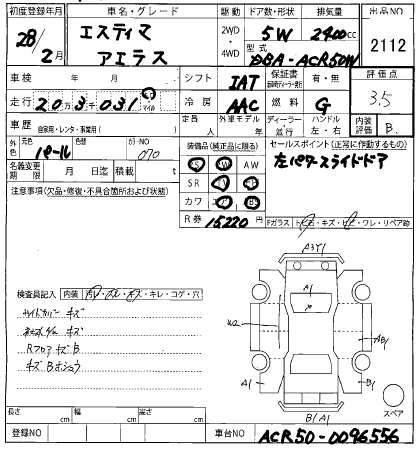 初度登録年月 車名・グレード 駆動 ドア数・形状 排気量 出品NO
28/2月 エスティマ アエラス 2WD・4WD 5W 2400cc 2112
型式 DBA-ACR50W
車検 年 月 シフト IAT 保証書 有・無 評価点
走行 20万3千031 km マイル 冷房 AAC 燃料 G 3.5
車歴 自家用・レンタ・事業用( ) 定員 人 外車モデル 年 ディーラー・並行 ハンドル 左・右 内装評価 B
外色 元色 パール 色替 カラーNO 070 装備品(純正品に限る) セールスポイント(正常に作動するもの)
左パワースライドドア
名義変更期限 月 日迄 積載 t
PS PW AW
SR TV
カワ
注意事項(欠品・修復・不具合箇所および状態)
R券 15220円 Fガラス トビ石・キズ・ヒビ・ワレ・リペア跡
検査員記入 内装 汚レ・スレ・キズ・キレ・コゲ・穴
サイドカバー キズ
キズ
Rフロア キズB
キズB
A3Y1
A1
W2
AB1
A1
B1
B/A1
スペア
長さ cm 幅 cm 高さ cm
登録NO 車台NO ACR50-0096556